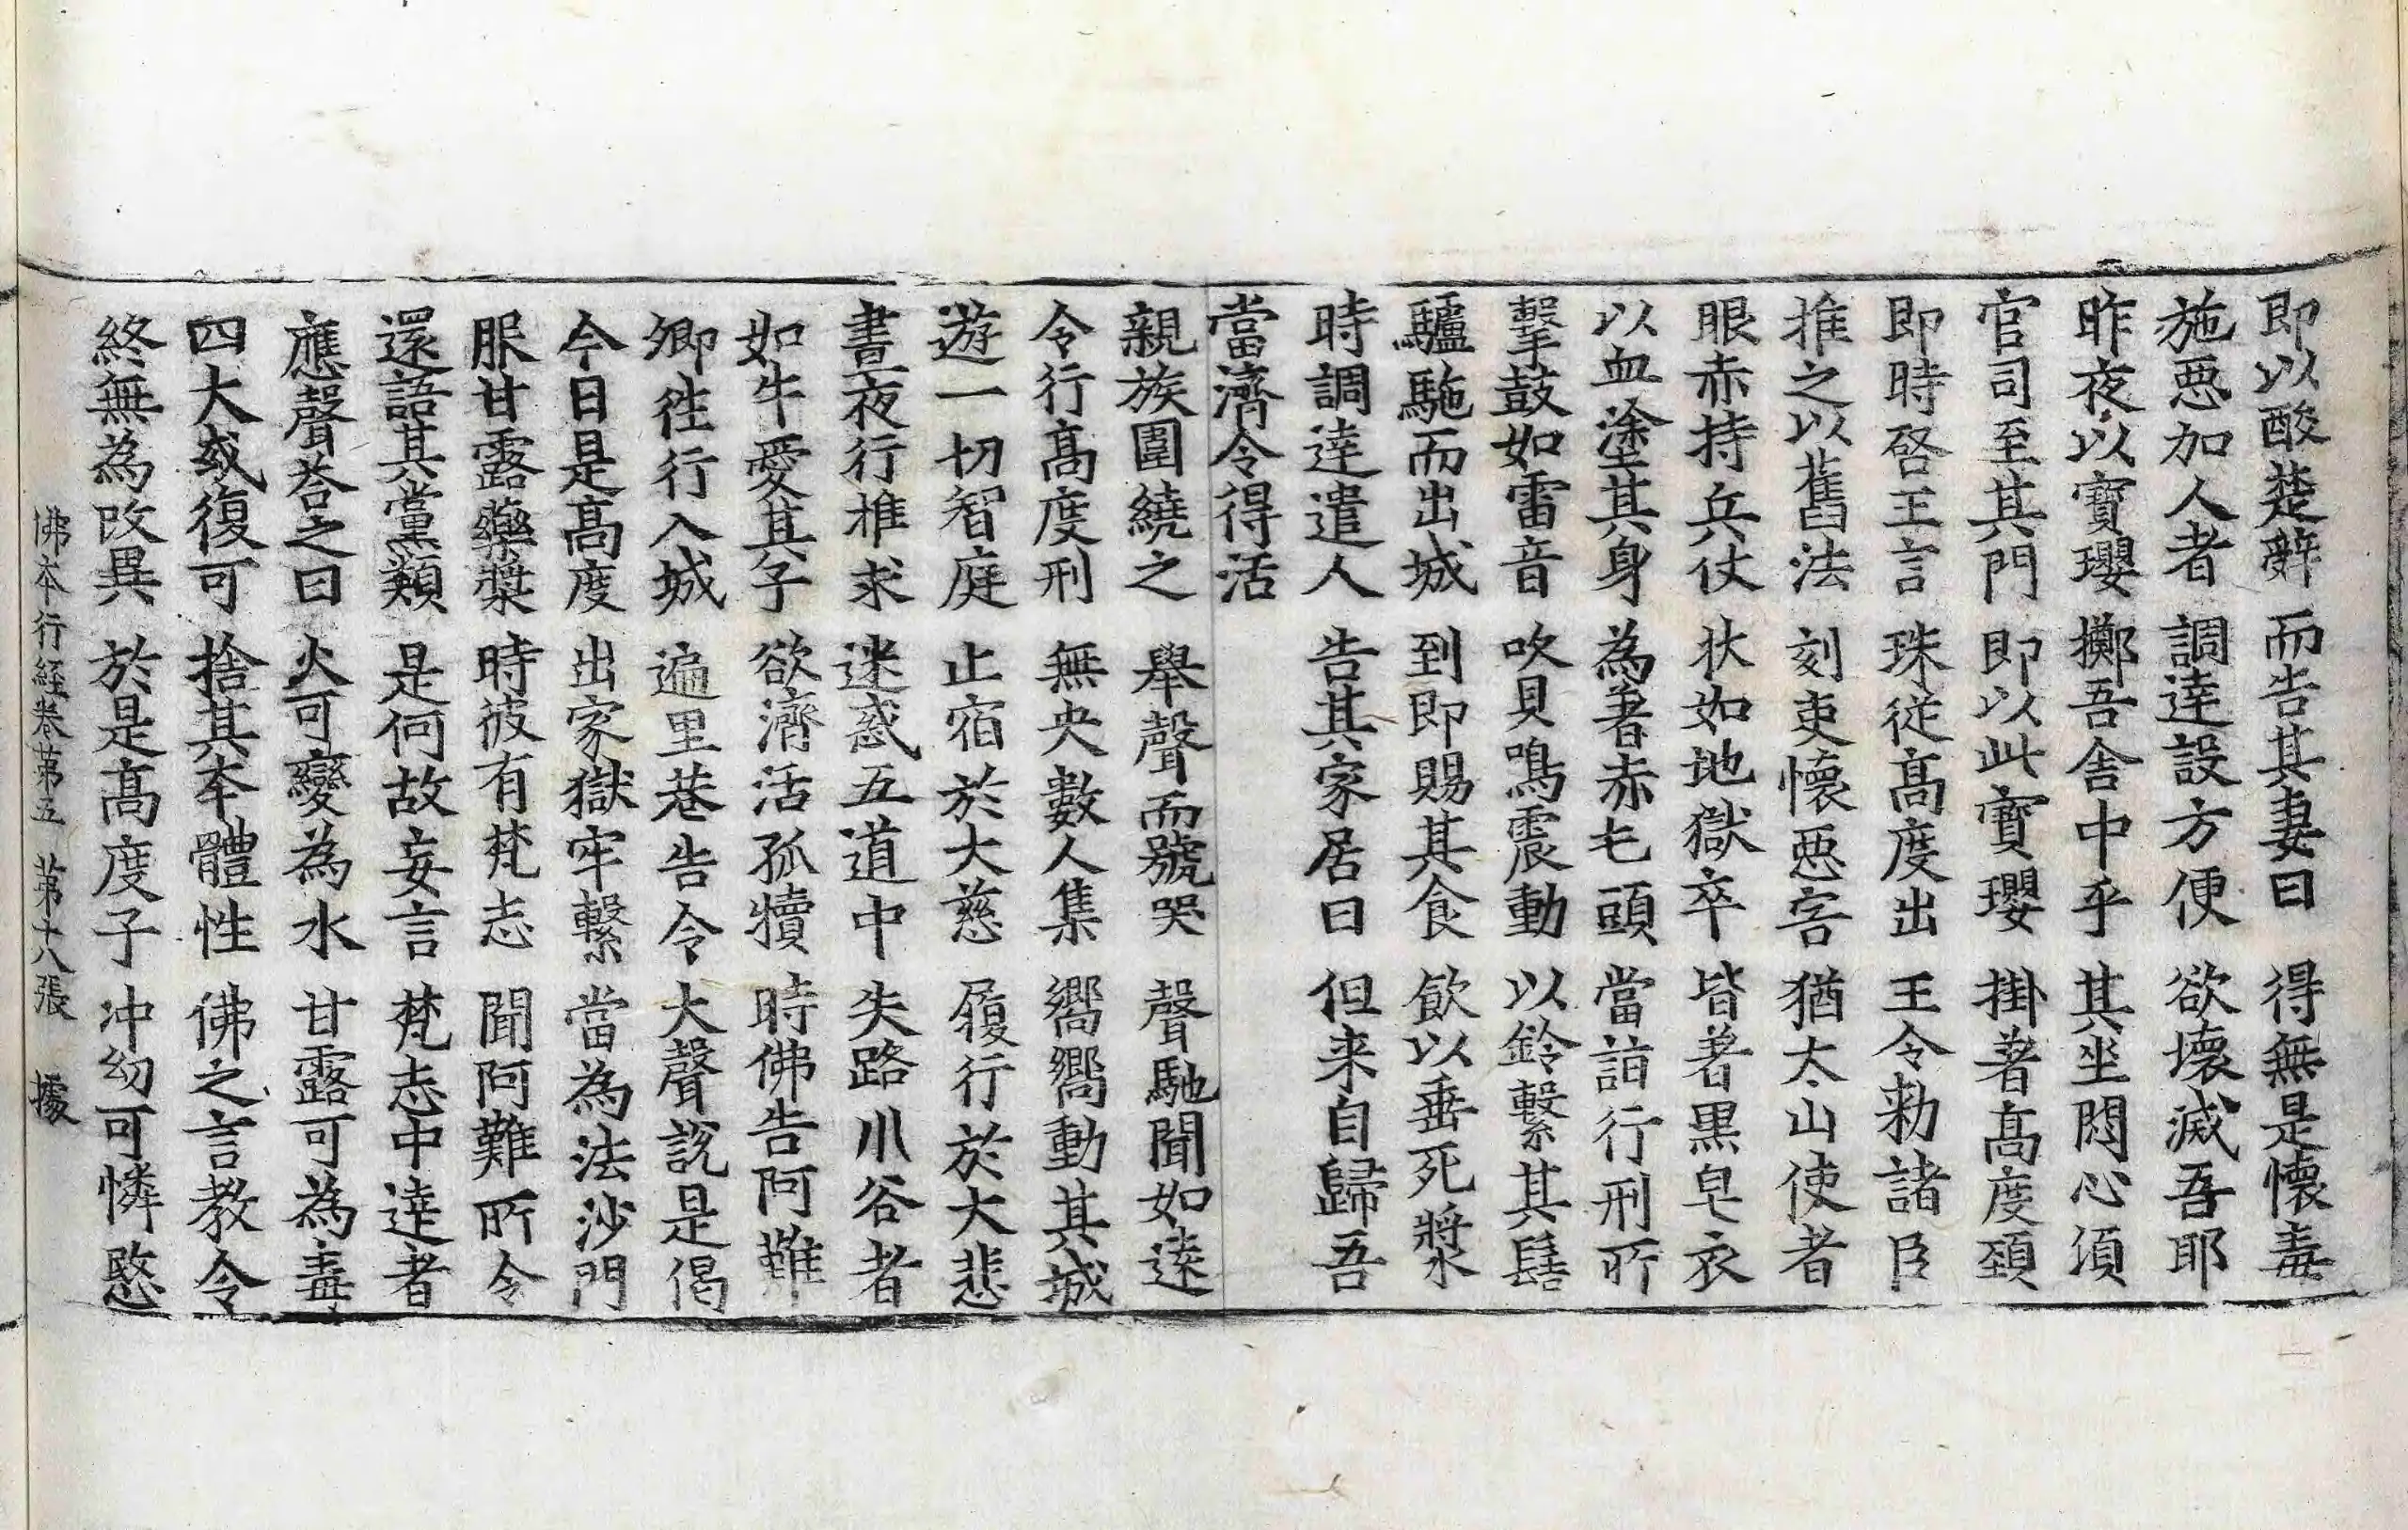 即以酸楚辝 而告其妻曰 得無是懷毒
施惡加人者 調達設方便 欲壞滅吾耶
昨夜以寶瓔 擲吾舍中乎 其坐悶心須
官司至其門 即以此寶瓔 掛著髙度頸
即時啓王言 珠從髙度出 王令勑諸臣
推之以舊法 刻吏懷惡害 猶太山使者
眼赤持兵仗 状如地獄卒 皆著黒皂衣
以血塗其身 為著赤毛頭 當詣行刑所
擊鼓如雷音 吹貝鳴震動 以鈴繫其髻
驢馳而出城 到即賜其食 飲以垂死漿
時調達遣人 告其家居曰 但来自歸吾
當濟令得活
親族圍繞之 舉聲而號哭 聲馳聞如逺
令行髙度刑 無央數人集 嚮嚮動其城
遊一切智庭 止宿於大慈 履行於大悲
晝夜行推求 迷惑五道中 失路川谷者
如牛愛其子 欲濟活孤犢 時佛告阿難
卿徃行入城 遍里巷告令 大聲説是偈
今日是髙度 出家獄牢繫 當為法沙門
服甘露藥漿 時彼有梵志 聞阿難所令
還語其黨類 是何故妄言 梵志中達者
應聲荅之曰 火可變為水 甘露可為毒
四大或復可 捨其本體性 佛之言教令
終無為改異 於是髙度子 冲幼可憐愍
佛本行經卷第五 第十八張 據